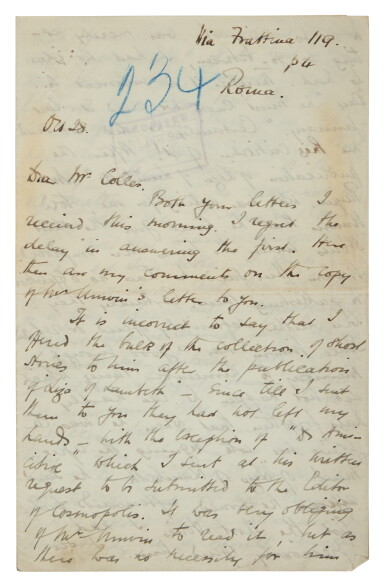 Via Frattina 119.
p 4
234
Roma.
Oct 28.
Dear Mr Colles.
Both your letters I
received this morning. I regret the
delay in answering the first. Here
then are my comments on the copy
of Mr Unwin's letter to you.
It is incorrect to say that I
offered the bulk of the collection of short
stories to him after the publication
of Liza of Lambeth – Since till I sent
them to you they had not left my
hands – with the exception of "De Ami-
citia" which I sent at his written
request to be submitted to the Editor
of Cosmopolis. It was very obliging
of Mr Unwin to read it, but as
there was no necessity for him